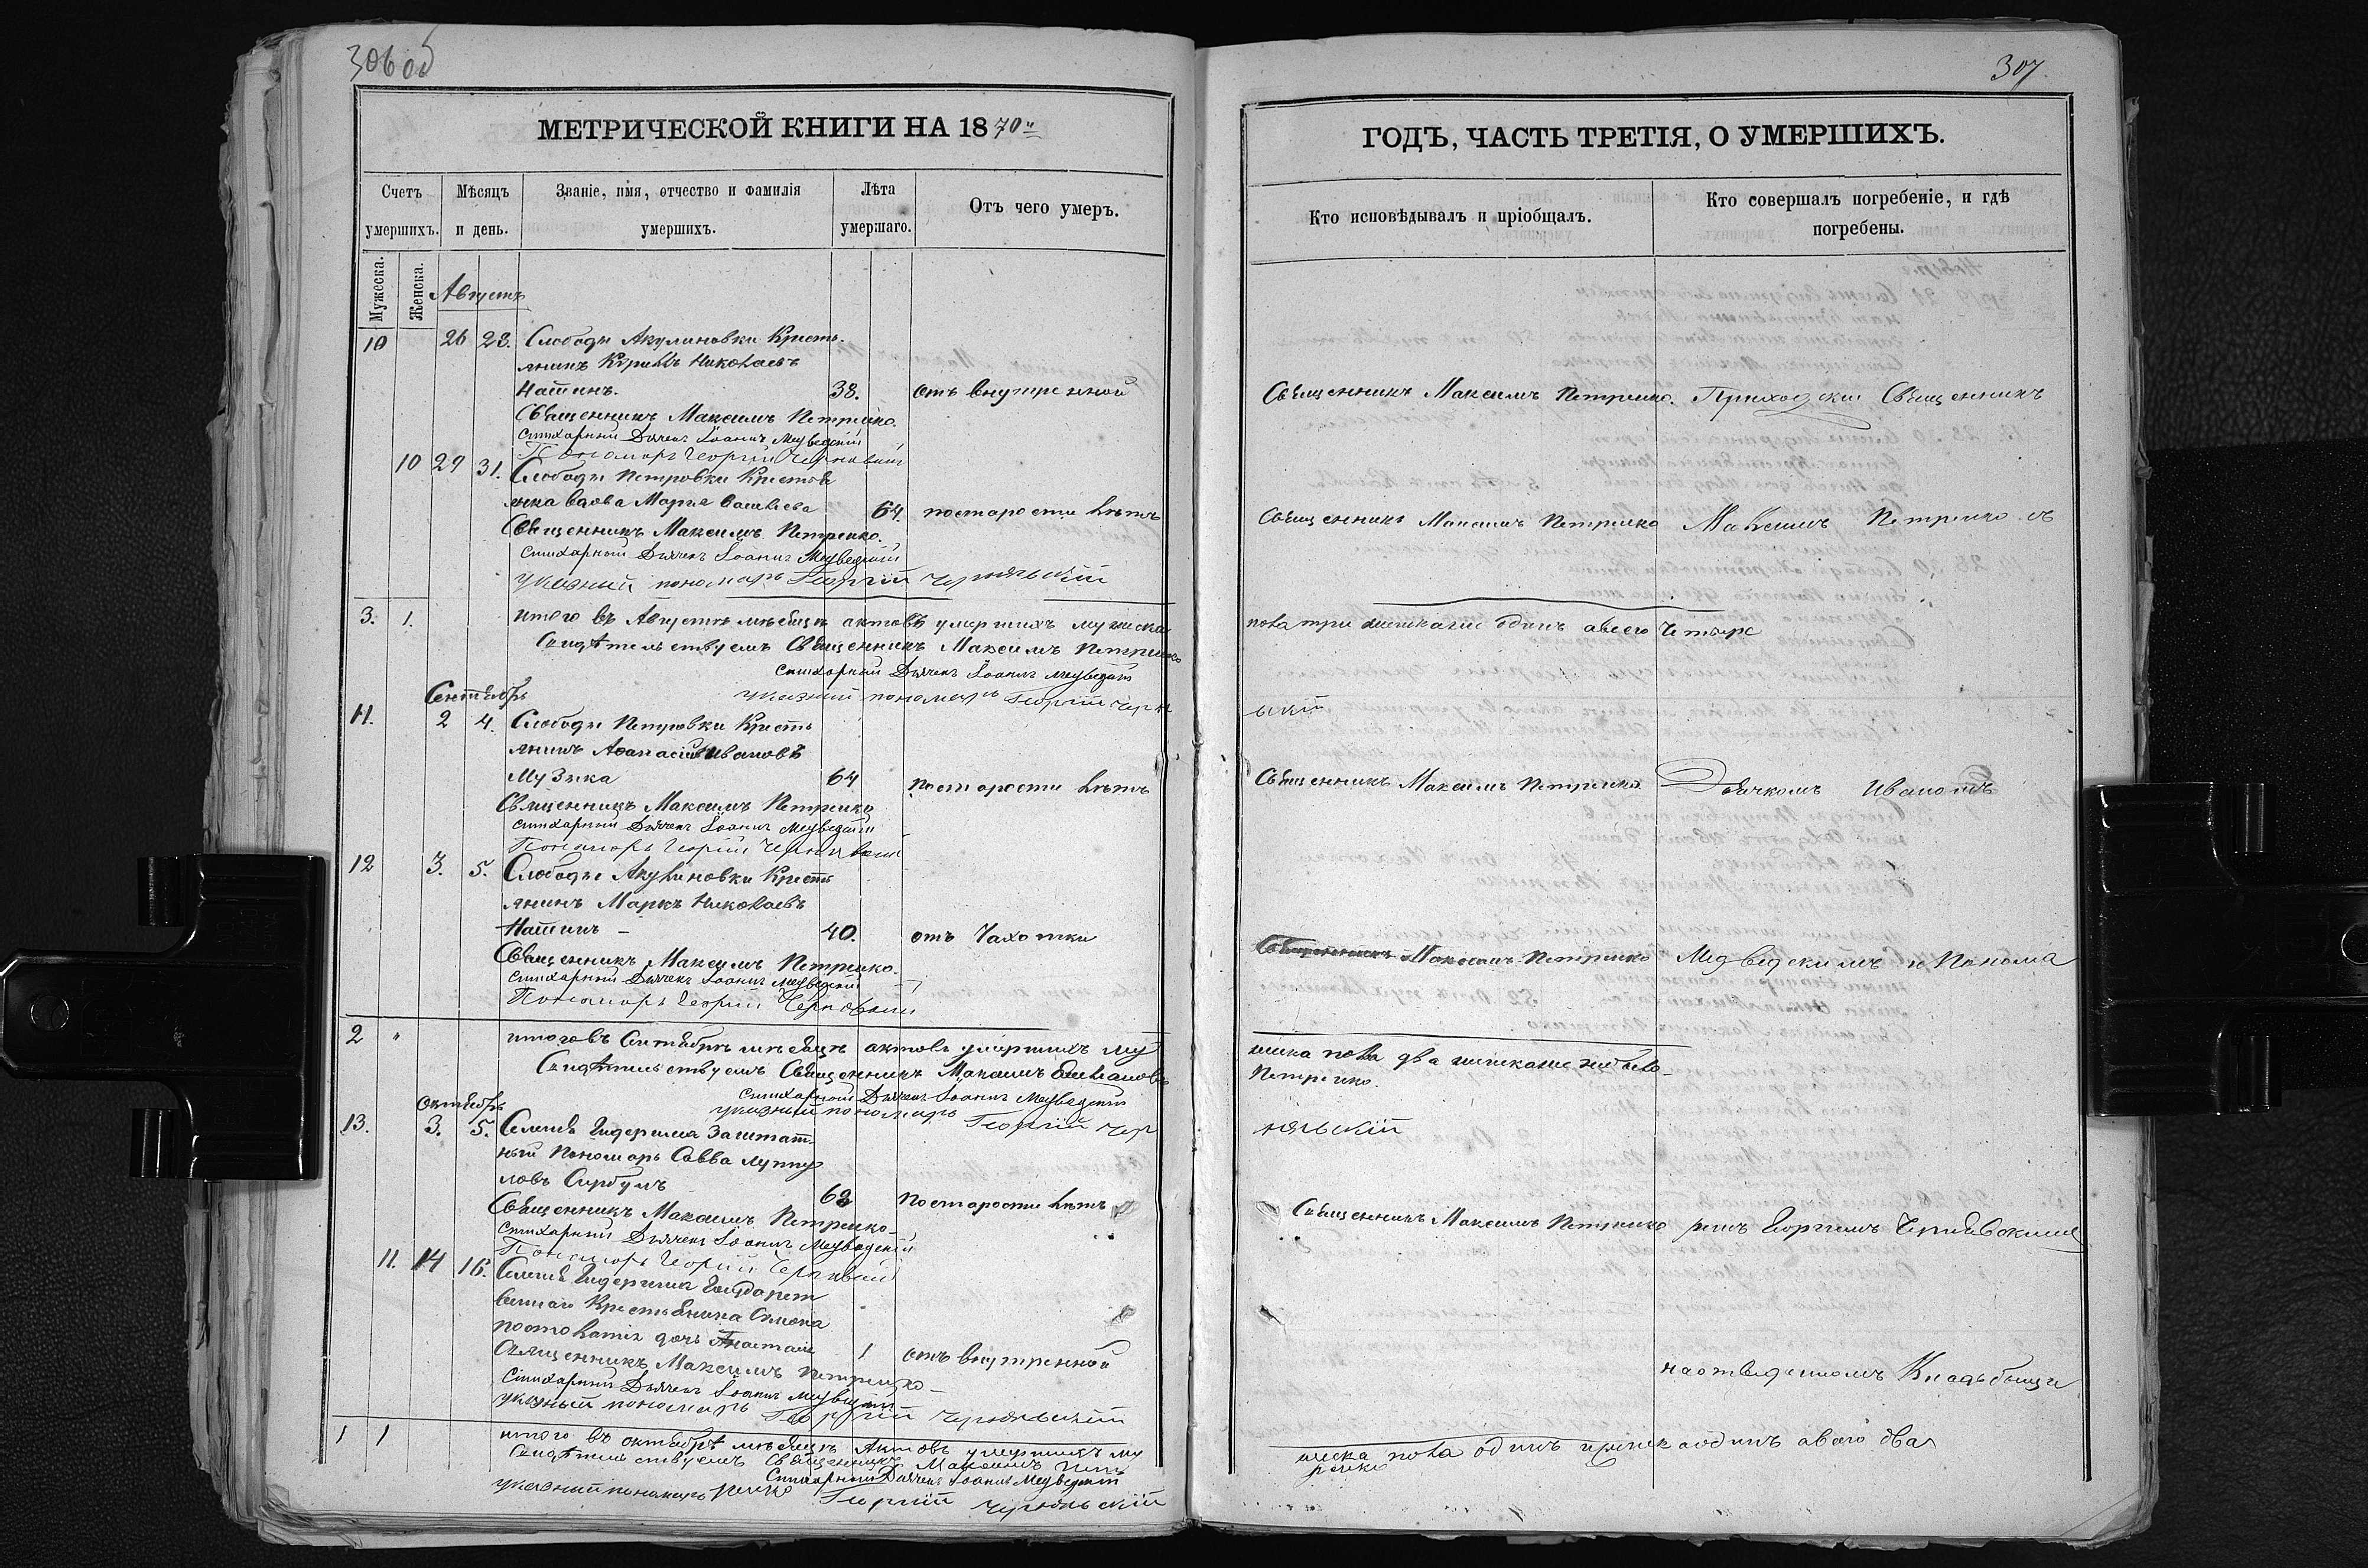 306 об
МЕТРИЧЕСКОЙ КНИГИ НА 1870
Счетъ умершихъ.
Мѣсяцъ и день.
Званіе, имя, отчество и фамилія умершихъ.
Лѣта умершаго.
Отъ чего умеръ.
Мужеска.
Женска.
Августъ
10 26 28. Слободы Акулиновки Кресть.
янинъ Николаевъ
Натинъ. 38. отъ внутренной
Священникъ Максимъ Петренко.
Стихарный Дьячекъ Іоаннъ Медведскій
Пономарь Георгій Чернявскій
10 29 31. Слободы Петровки Кресть
янка вдова Марія Васильева 64. по старости лѣтъ
Священникъ Максимъ Петренко.
Стихарный Дьячекъ Іоаннъ Медведскій
указный пономарь Георгій Чернявскій
3. 1. итого въ Августѣ мѣсяцѣ актовъ умершихъ мужеска
Свидѣтельствуемъ Священникъ Максимъ Петренко
Стихарный Дьячекъ Іоаннъ Медведскій
указный пономарь Георгій Черня
Сентябрь
11. 2 4. Слободы Петровки Кресть
янинъ Аѳанасій Ивановъ
Музыка 64 по старости лѣтъ
Священникъ Максимъ Петренко
Стихарный Дьячекъ Іоаннъ Медведскій
Пономарь Георгій Чернявскій
12 3. 5. Слободы Акулиновки Кресть
янинъ Маркъ Николаевъ
Натинъ – 40. отъ Чахотки
Священникъ Максимъ Петренко.
Стихарный Дьячекъ Іоаннъ Медведскій
Пономарь Георгій Чернявскій
2 " итого въ Сентябрѣ мѣсяцѣ актовъ умершихъ му
Свидѣтельствуемъ Священникъ Максимъ
Стихарный Дьячекъ Іоаннъ Медведскій
указный пономарь Георгій Чер
октябрь
13. 3. 5. Селенія Гидерима Заштат-
ный Пономарь Савва
ловъ Сырбулъ 62 по старости лѣтъ
Священникъ Максимъ Петренко –
Стихарный Дьячекъ Іоаннъ Медведскій
Пономарь Георгій Чернявскій
11. 14 16. Селенія Гидерима Государст
веннаго Крестьянина
дочь Анастасія 1 отъ внутренной
Священникъ Максимъ Петренко –
Стихарный Дьячекъ Іоаннъ Медведскій
указный пономарь Георгій Чернявскій
1 1 итого въ октябрѣ мѣсяцѣ Актовъ умершихъ му
Свидѣтельствуемъ Священникъ Максимъ Пет
ренко Стихарный Дьячекъ Іоаннъ Медведскій
указный пономарь Георгій Чернявскій
307
ГОДЪ, ЧАСТЬ ТРЕТІЯ, О УМЕРШИХЪ.
Кто исповѣдывалъ и пріобщалъ.
Кто совершалъ погребеніе, и гдѣ погребены.
Священникъ Максимъ Петренко. Приходский Священникъ
Священникъ Максимъ Петренко Максимъ Петренко съ
пола три женскаго одинъ а всего Четыре
вскій
Священникъ Максимъ Петренко Дьячкомъ Иваномъ
Священникъ Максимъ Петренко Медведскимъ и Понома
жеска пола два женскаго небыло –
Петренко.
нявскій
Священникъ Максимъ Петренко ремъ Георгіемъ Чернявскимъ
на отведенномъ Кладбыще
жеска пола одинъ женск. одинъ а всего два
ренко